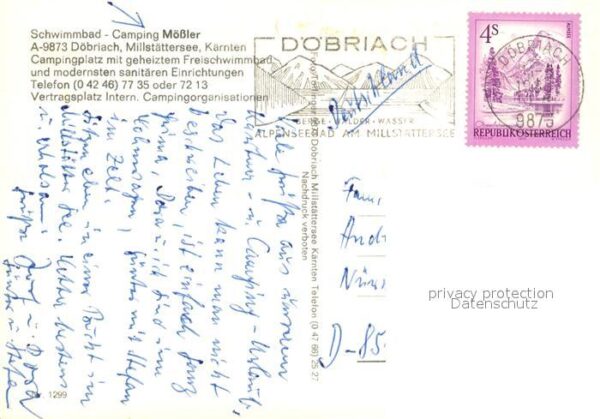 Schwimmbad - Camping Mößler
A-9873 Döbriach, Millstättersee, Kärnten
Campingplatz mit geheiztem Freischwimmbad
und modernsten sanitären Einrichtungen
Telefon (0 42 46) 77 35 oder 72 13
Vertragsplatz Intern. Campingorganisationen
DÖBRIACH
BERGE · WÄLDER · WASSER
ALPENSEEBAD AM MILLSTÄTTERSEE
4S
REPUBLIK ÖSTERREICH
DÖBRIACH
9873
Deutschland
Döbriach Millstättersee Kärnten Telefon (0 47 66) 25 27
Nachdruck verboten
Grüße aus unserem
Camping-Urlaub.
Das Leben kann man nicht
beschreiben, ist einfach ganz
prima.
Wohnwagen, Günter mit Stefan
im Zelt.
Sitzen eben in einer Bucht im
Millstätter See. Wetter bestens
Fam.
And
Nürn
D-85
privacy protection
Datenschutz
1299